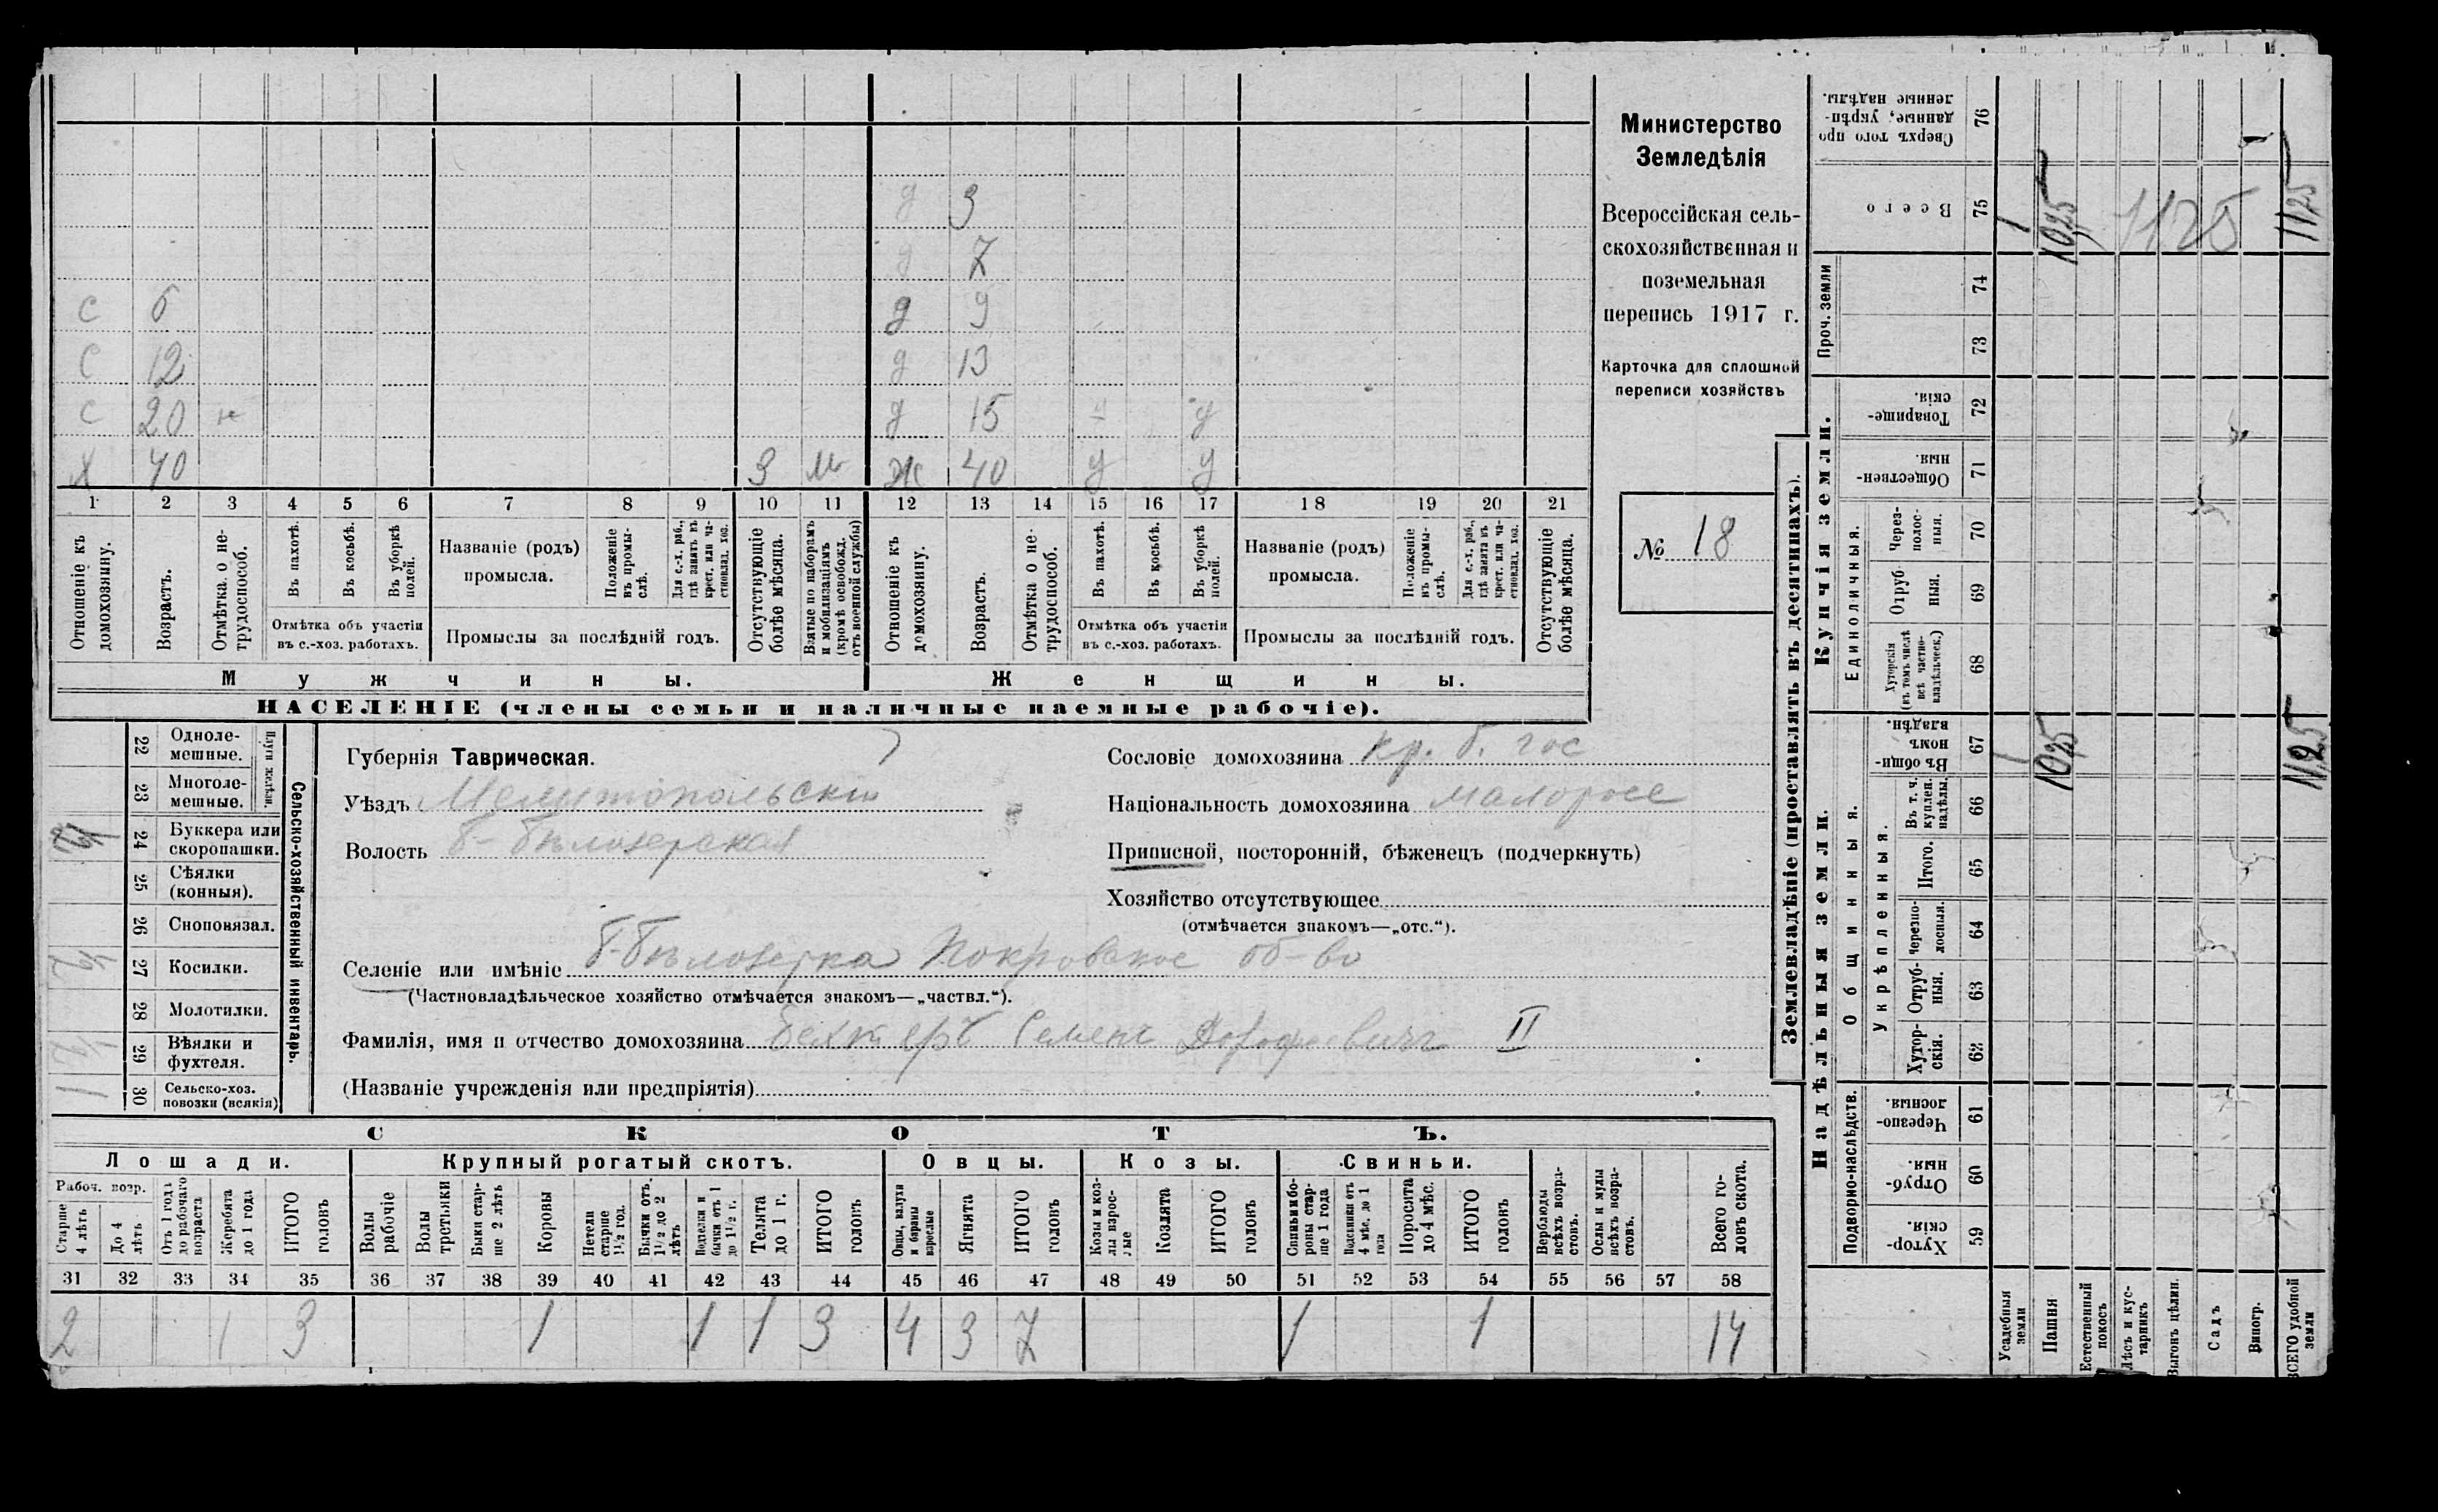 д 3
д 7
С 6 д 9
С 12 д 13
С 20 н д 15 у у
Х 40 3 м Ж 40 у у
1 2 3 4 5 6 7 8 9 10 11 12 13 14 15 16 17 18 19 20 21
Отношеніе къ домохозяину.
Возрастъ.
Отмѣтка о не-трудоспособ.
Въ пахотѣ.
Въ косьбѣ.
Въ уборкѣ полей.
Отмѣтка объ участіи
въ с.-хоз. работахъ.
Названіе (родъ)
промысла.
Положеніе въ промы-слѣ.
Для с.-х. раб., гдѣ занятъ въ крест. или ча-стновлад. хоз.
Промыслы за послѣдній годъ.
Отсутствующіе болѣе мѣсяца.
Взятые по наборамъ и мобилизаціямъ (кромѣ освобожд. отъ военной службы)
Отношеніе къ домохозяину.
Возрастъ.
Отмѣтка о не-трудоспособ.
Въ пахотѣ.
Въ косьбѣ.
Въ уборкѣ полей.
Отмѣтка объ участіи
въ с.-хоз. работахъ.
Названіе (родъ)
промысла.
Положеніе въ промы-слѣ.
Для с.-х. раб., гдѣ занята въ крест. или ча-стновлад. хоз.
Промыслы за послѣдній годъ.
Отсутствующіе болѣе мѣсяца.
Мужчины.
Женщины.
НАСЕЛЕНІЕ (члены семьи и наличные наемные рабочіе).
Министерство
Земледѣлія
Всероссійская сель-
скохозяйственная и
поземельная
перепись 1917 г.
Карточка для сплошной
переписи хозяйствъ
№ 18
Сельско-хозяйственный инвентарь.
Плуги желѣзн.
22 Одноле-мешные.
23 Многоле-мешные.
24 Буккера или скоропашки.
25 Сѣялки (конныя).
26 Сноповязал.
27 Косилки. 1/2
28 Молотилки.
29 Вѣялки и фухтеля. 1/2
30 Сельско-хоз. повозки (всякія) 1
Губернія Таврическая.
Уѣздъ Мелитопольскій
Волость Б-Бѣлозерская
Сословіе домохозяина кр. б. гос
Національность домохозяина малоросс
Приписной, посторонній, бѣженецъ (подчеркнуть)
Хозяйство отсутствующее
(отмѣчается знакомъ—„отс.“).
Селеніе или имѣніе Б-Бѣлозерка Покровское об-во
(Частновладѣльческое хозяйство отмѣчается знакомъ—„частвл.“).
Фамилія, имя и отчество домохозяина Семенъ Дорофеевичъ II
(Названіе учрежденія или предпріятія)
СКОТЪ.
Лошади. Крупный рогатый скотъ. Овцы. Козы. Свиньи.
Рабоч. возр.
Старше 4 лѣтъ
До 4 лѣтъ
Отъ 1 года до рабочаго возраста
Жеребята до 1 года
ИТОГО головъ
Волы рабочіе
Волы третьяки
Быки стар-ше 2 лѣтъ
Коровы
Нетели старше 1½ год.
Бычки отъ 1½ до 2 лѣтъ
Телки и бычки отъ 1 до 1½ г.
Телята до 1 г.
ИТОГО головъ
Овцы, валухи и бараны взрослые
Ягнята
ИТОГО головъ
Козы и коз-лы взрос-лые
Козлята
ИТОГО головъ
Свиньи и бо-ровы стар-ше 1 года
Подсвинки отъ 4 мѣс. до 1 года
Поросята до 4 мѣс.
ИТОГО головъ
Верблюды всѣхъ возра-стовъ.
Ослы и мулы всѣхъ возра-стовъ.
Всего го-ловъ скота.
31 32 33 34 35 36 37 38 39 40 41 42 43 44 45 46 47 48 49 50 51 52 53 54 55 56 57 58
2 1 3 1 1 1 3 4 3 7 1 1 14
Землевладѣніе (проставлять въ десятинахъ).
Надѣльныя земли.
Купчія земли.
Проч. земли
Подворно-наслѣдств.
Общинныя.
Укрѣпленныя.
Единоличныя.
76 Сверхъ того про-данные, укрѣп-ленные надѣлы.
75 Всего
74
73
72 Товарище-скія.
71 Обществен-ныя.
70 Через-полос-ныя.
69 Отруб-ныя.
68 Хуторскія (въ томъ числѣ всѣ частно-владѣльческ.)
67 Въ общин-номъ владѣн.
66 Въ т. ч. куплен. надѣлы.
65 Итого.
64 Черезпо-лосныя.
63 Отруб-ныя.
62 Хутор-скія.
61 Черезпо-лосныя.
60 Отруб-ныя.
59 Хутор-скія.
Усадебныя земли 1 1
Пашня 1025 1025
Естественный покосъ
Лѣсъ и кус-тарникъ
Выгонъ цѣлин.
Садъ
Виногр.
ВСЕГО удобной земли 1125 1125
1125